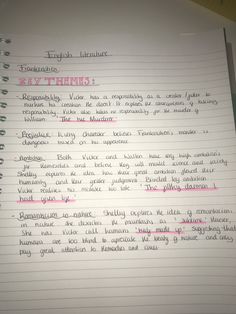 English literature
Frankenstein
KEY THEMES:
- Responsibility: Victor has a responsibility as a creator / father to
nurture his creation. He doesn't. It explores the consequences of lacking
responsibility. Victor also takes on responsibility for the murder of
William. "I the true Murderer"
- Prejudice: Every character believes Frankenstein's monster is
dangerous based on his appearance
- Ambition: Both Victor and Walton have very high ambitions
for themselves and believe they will
Shelley explores the idea how their great ambition
humanity and their greater judgement. Blinded by ambition
Victor realises his mistake too late. "The filthy daemon I
had given life"
- Romanticism in nature: Shelley explores the idea of romanticism
in nature. She describes the mountains as "sublime". However,
She has Victor call humans "half made up" suggesting that
humans are too blind to appreciate the beauty of nature and only
pay great attention to themselves and